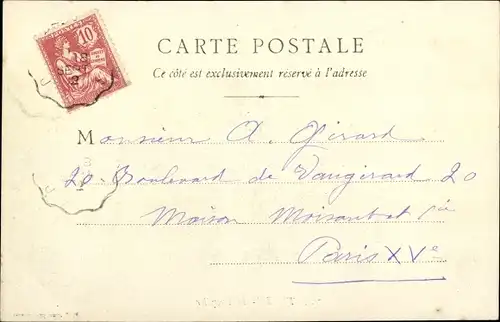 10
CARTE POSTALE
Ce côté est exclusivement réservé à l'adresse
Monsieur A. Girard
20 Boulevard de Vaugirard 20
Maison
Paris XVe